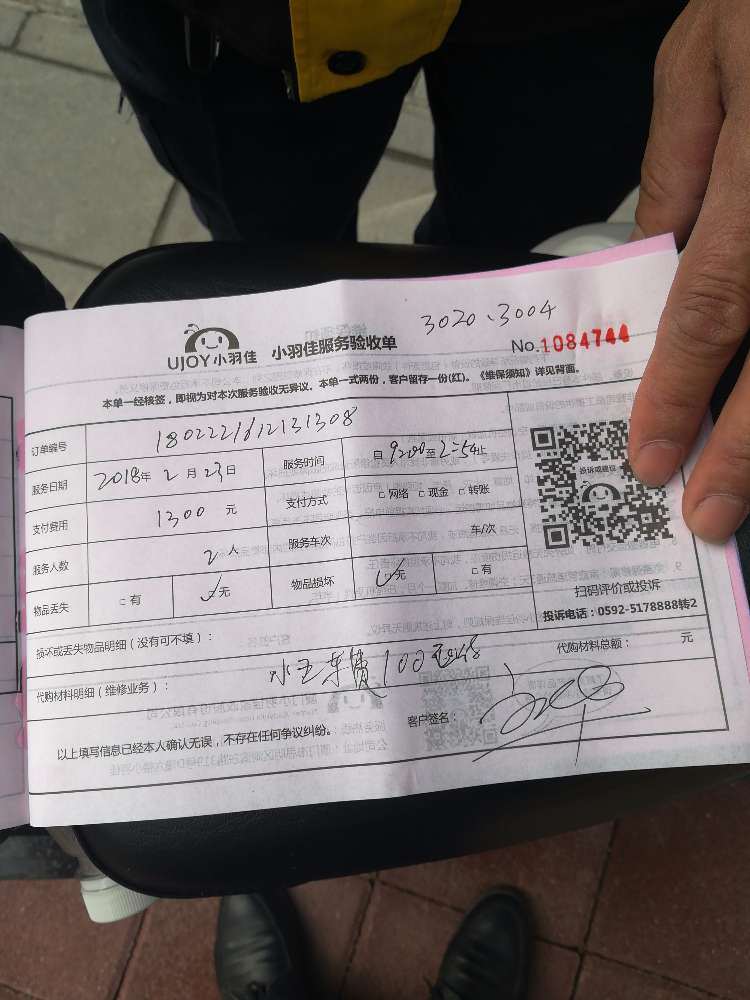 3020、3004
UJOY小羽佳 小羽佳服务验收单
No.1084744
本单一经核签，即视为对本次服务验收无异议。本单一式两份，客户留存一份(红)。《维保须知》详见背面。
订单编号 180222161213130 8
服务日期 2018年 2 月 23 日 服务时间 自 9:00 至 2:54 止
支付费用 1300 元 支付方式 □网络 □现金 □转账
服务人数 2 人 服务车次 车/次
物品丢失 □有 ✓无 物品损坏 ✓无 □有
投诉或建议
扫码评价或投诉
投诉电话：0592-5178888转2
损坏或丢失物品明细（没有可不填）：
代购材料明细（维修业务）： 代购材料总额： 元
车费100
以上填写信息已经本人确认无误，不存在任何争议纠纷。 客户签名：